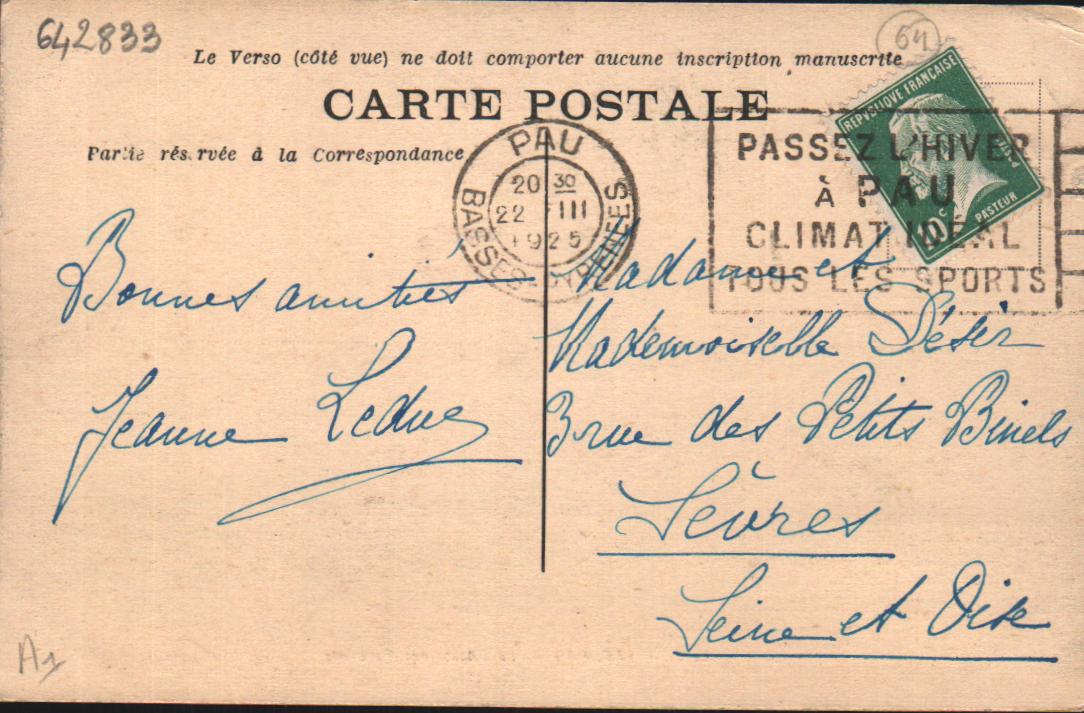 642833
64
Le Verso (côté vue) ne doit comporter aucune inscription manuscrite
CARTE POSTALE
Partie réservée à la Correspondance
PAU
20 30
22 III
1925
BASSES-PYRENEES
REPVBLIQVE FRANÇAISE
PASTEUR
PASSEZ L'HIVER
À PAU
CLIMAT IDÉAL
TOUS LES SPORTS
Bonnes amitiés
Jeanne Leduc
Madame et
Mademoiselle Désir
3 rue des Petits Binels
Sèvres
Seine et Oise
A1